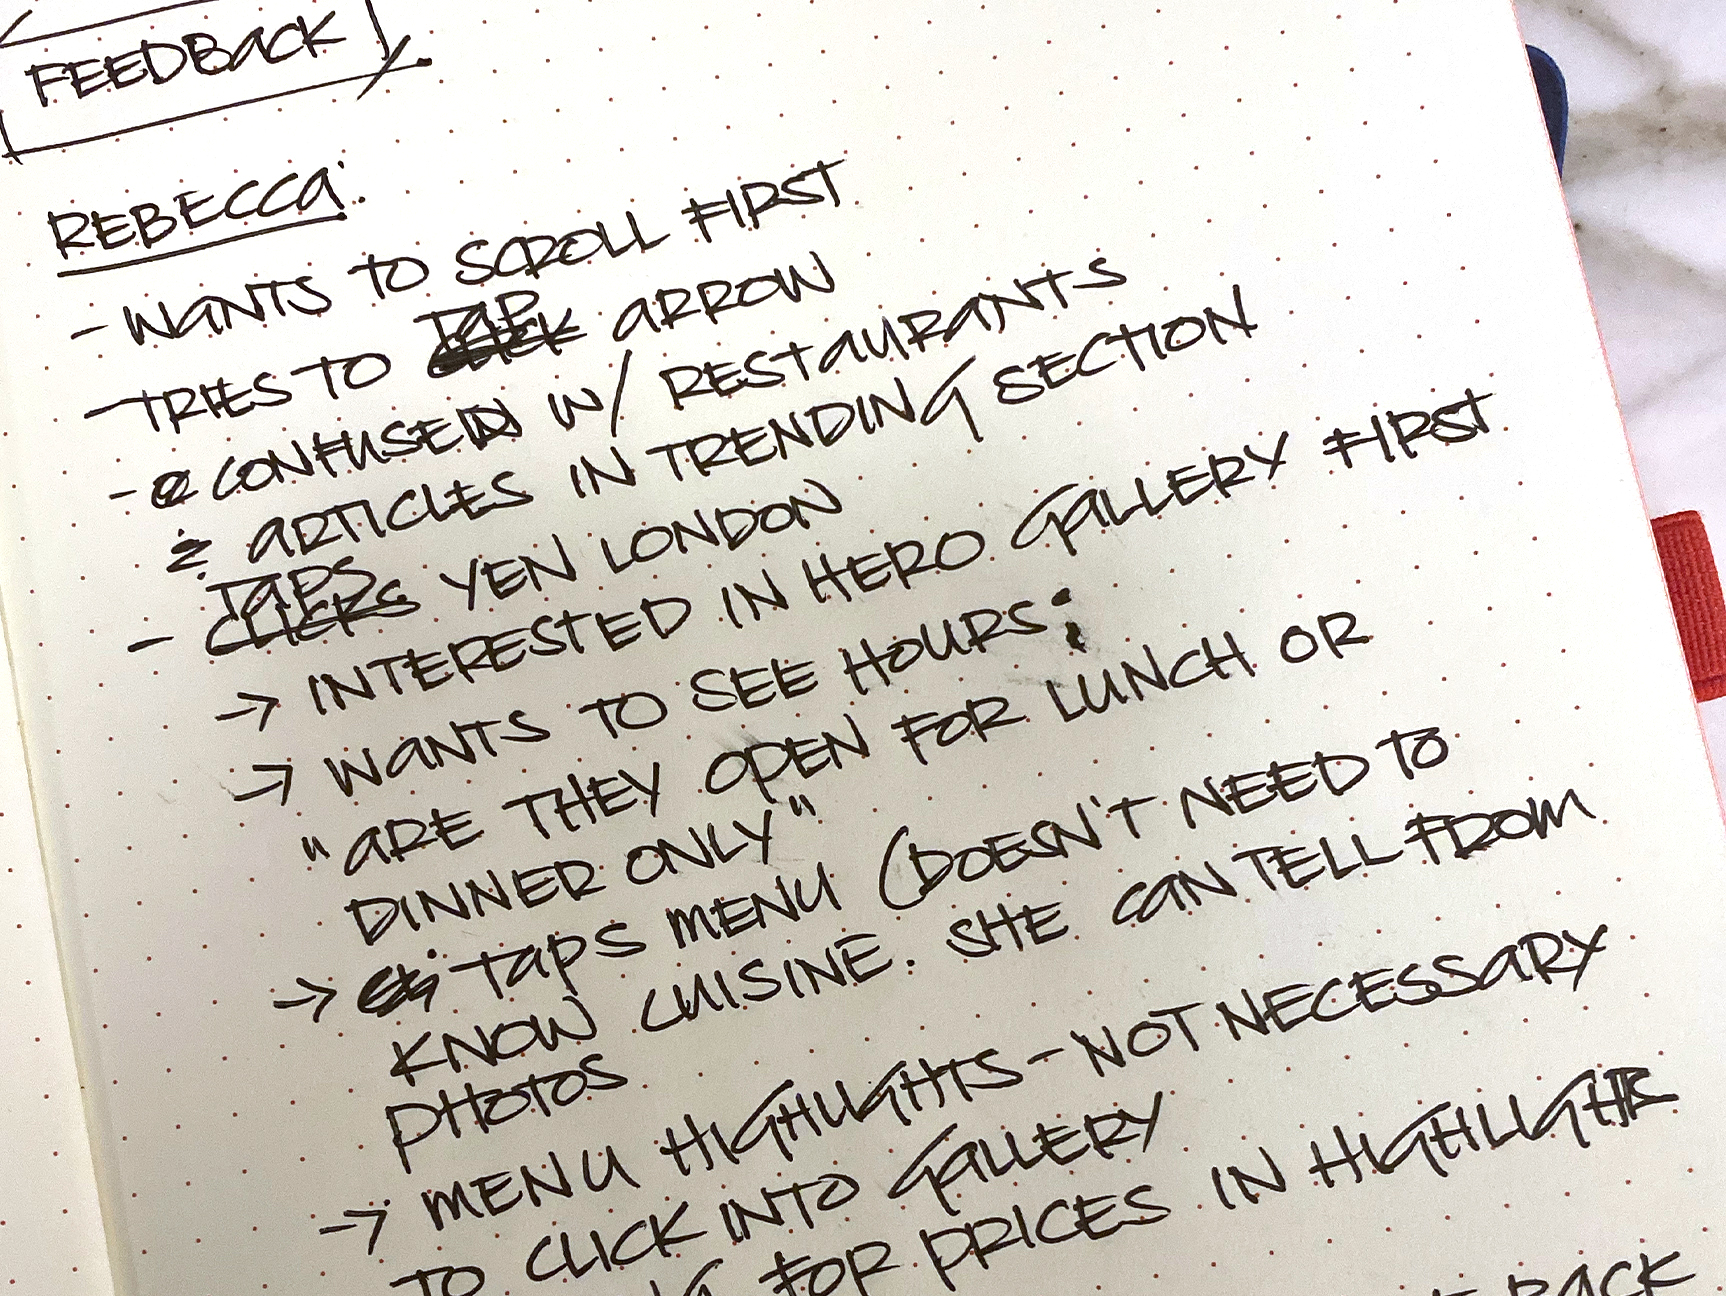 FEEDBACK
REBECCA:
- WANTS TO SCROLL FIRST
- TRIES TO TAP ARROW
- CONFUSED W/ RESTAURANTS
& ARTICLES IN TRENDING SECTION
- TAPS YEN LONDON
→ INTERESTED IN HERO GALLERY FIRST
→ WANTS TO SEE HOURS:
"ARE THEY OPEN FOR LUNCH OR
DINNER ONLY"
→ TAPS MENU (DOESN'T NEED TO
KNOW CUISINE. SHE CAN TELL FROM
PHOTOS
→ MENU HIGHLIGHTS - NOT NECESSARY
TO CLICK INTO GALLERY
FOR PRICES IN HIGHLIGHTS
BACK